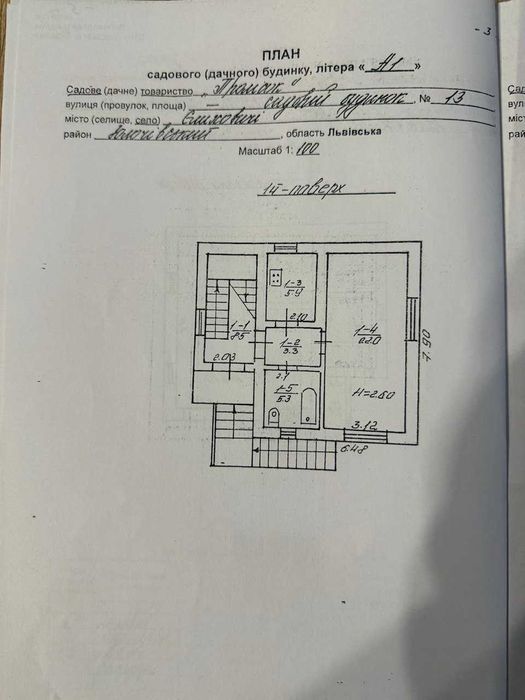 - 3
ПЛАН
садового (дачного) будинку, літера « А1 »
Садове (дачне) товариство „Тромак"
вулиця (провулок, площа) — садовий будинок, № 13
місто (селище, село) Єлиховичі
район Золочівський, область Львівська
Масштаб 1: 100
1й-поверх
1-3
5.4
1-1
8.5
2.10
1-4
22.0
1-2
3.3
2.03
7.90
2.7
1-5
5.3
H=2.60
3.12
6.48
Сад
вул
міст
рай